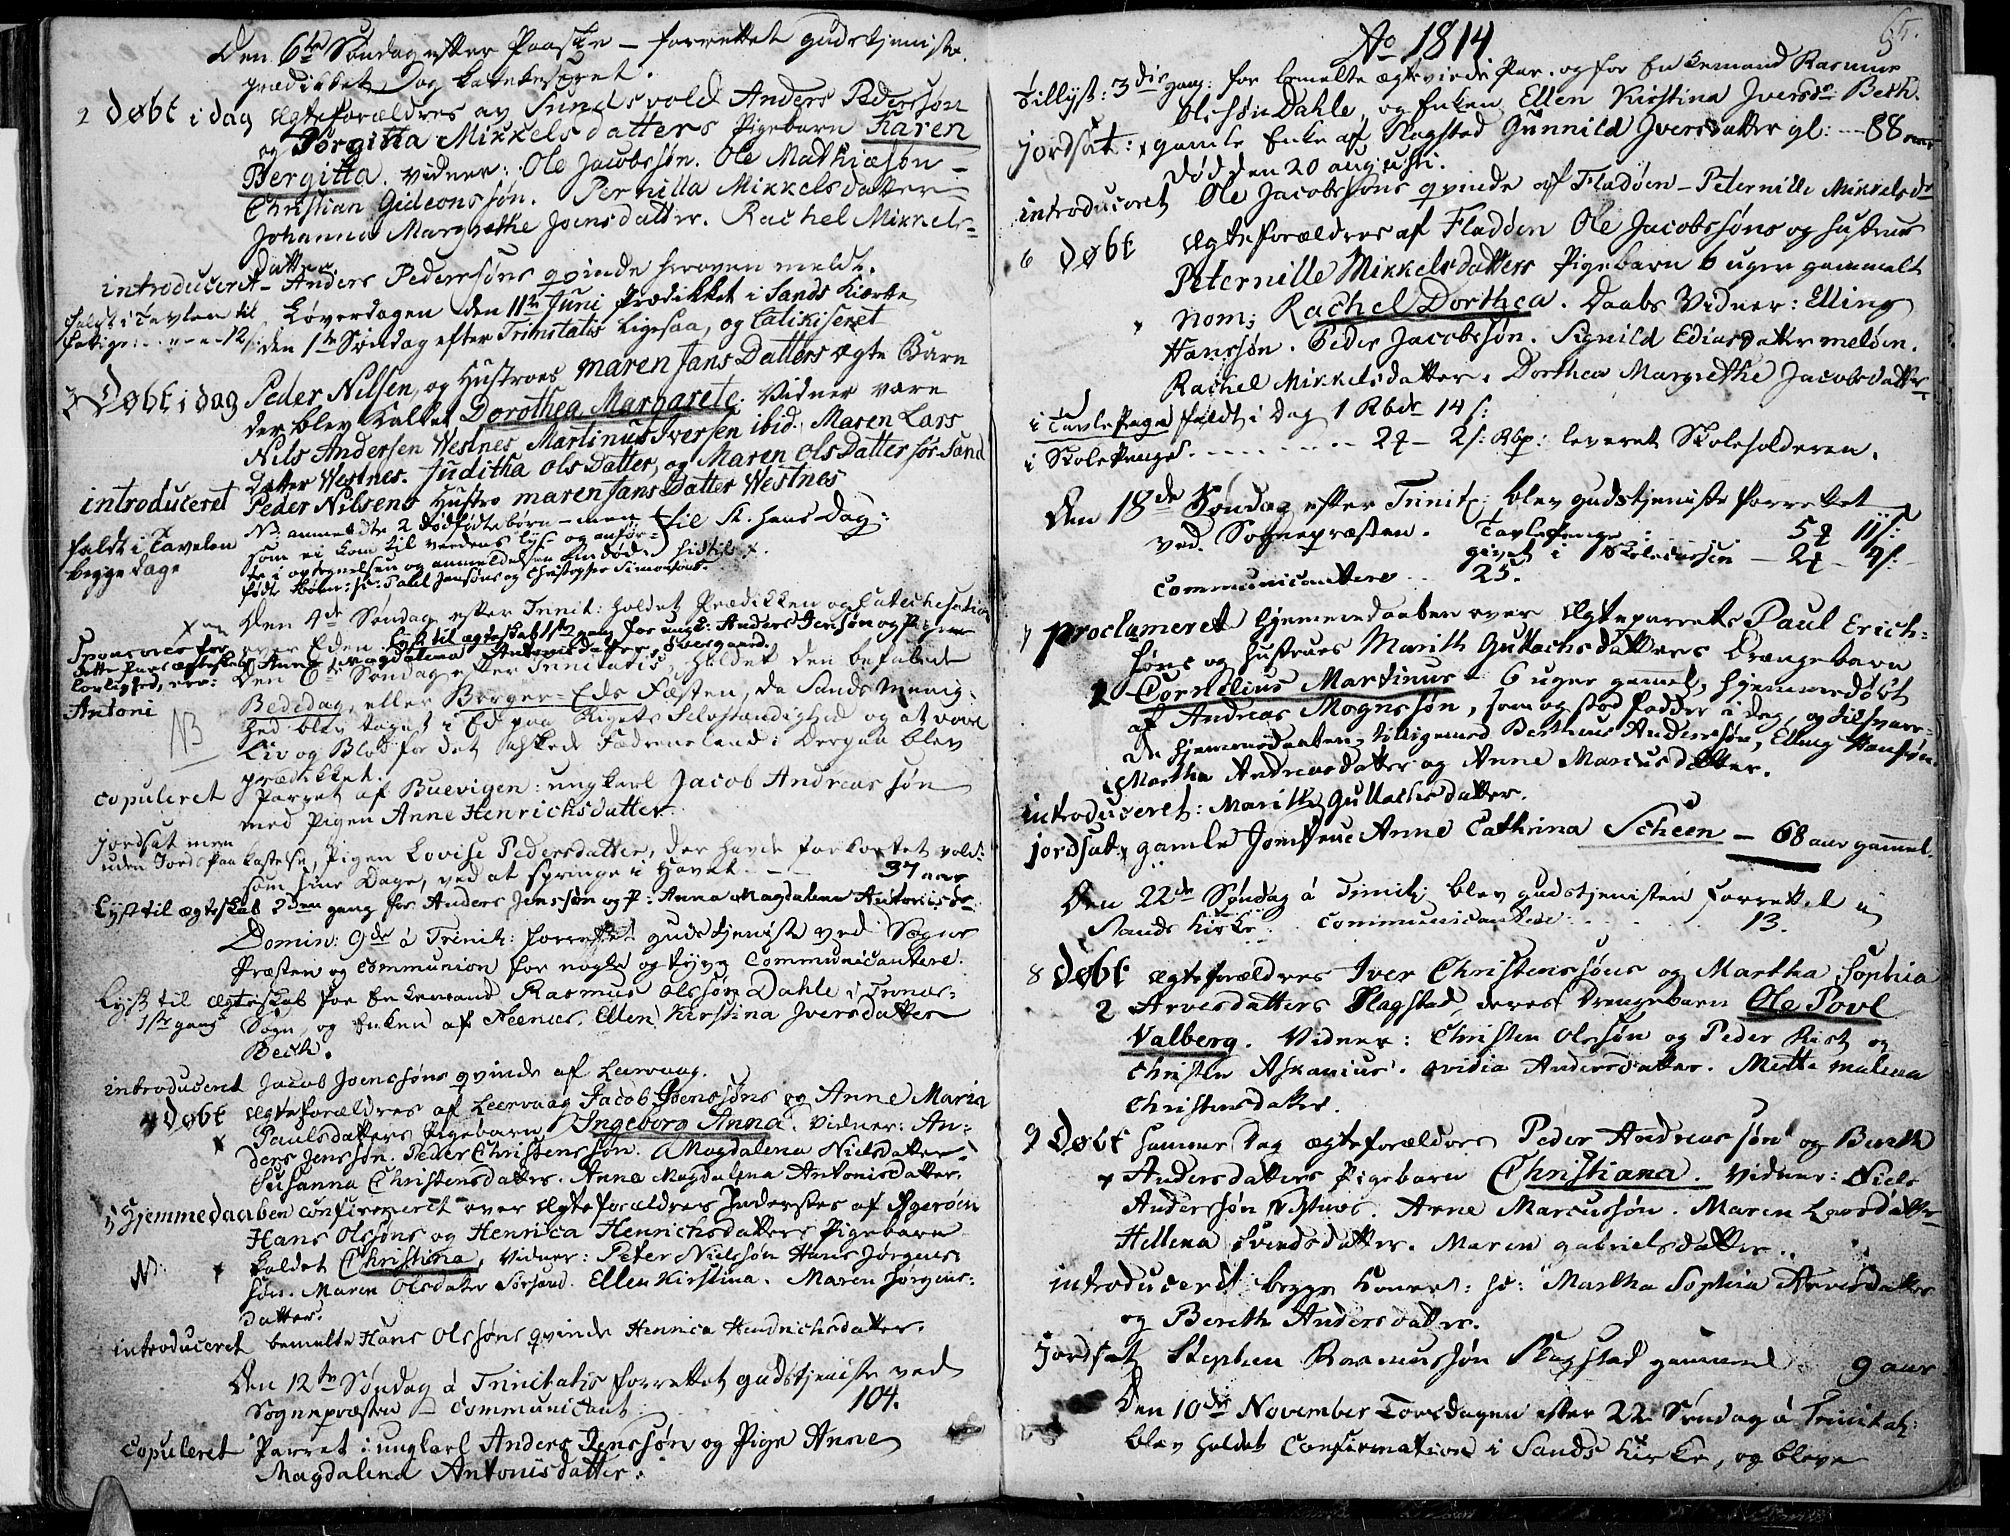 Den 6te Søndag efter Paaske - forrettet gudstjeniste.
prædikket og katekeseret.
2 Døbt i dag Ægteforældres av Sundsvold Anders Pedersøn
og Borgitta Mikkelsdatters Pigebarn Karen
Bergitta. Vidner: Ole Jacobssøn. Ole Mathiasøn -
Christian Gideonssøn. Pernilla Mikkelsdatter
Johanna Margrethe Joensdatter. Rachel Mikkels=
datter
introduceret - Anders Pederssøns qvinde heroven meldt.
faldt i Tavlen til Løverdagen den 11te Juni Prædikket i Sands Kierke
fattige - - - 12 s: den 1te Søndag efter Trinitatis Ligesaa, og Catikiseret
3 Døbt i dag Peder Nilsen, og Hustroes Maren Jans Datters ægte Barn
der blev kaldet Dorothea Margarete. Vidner vare
Nils Andersen Westnes, Martinus Iversen ibid. Maren Lars
Datter Westnes. Juditha Ols Datter, og Maren Ols Datter Sør-Sand
introduceret Peder Nilsens Hustro Maren Jans Datter Westnes
NB anmeldte 2 dødfødte børn - men til St. Hans Dag:
faldt i Tavelen som ei kom til verdens lys og anfør=
begge Dage
fødte Paul Jensøns og Christopher Simonsøns
Den 4de Søndag efter Trinit: holdet Prædikken og Catechesation
Sponsores for over Eden. Lyst til ægteskab 1ste gang for ungk: Anders Jensøn og Pigen
dette Pars ægteskabs Anna Magdalena Antonisdatter Overgaard.
lovlighed, ere: Den 6te Søndag efter Trinitatis, holdet den befalede
Antoni Bededag, eller Borger-Eds Festen, da Sands Menig=
NB hed blev taget i Ed paa Rigets Selvstændighed og at vove
Liv og Blod for det elskede Fædreneland: Derpaa blev
prædikket.
copuleret Parret af Buevigen: ungkarl Jacob Andreassøn
med Pigen Anne Henrichsdatter
jordsat men
uden Jords paakastelse, Pigen Lovise Pedersdatter, der havde forkortet vold=
som sine Dage, ved at springe i Havet. - - 37 aar
Lyst til ægteskab 2den gang for Anders Jenssøn og P: Anna Magdalena Antonisdr
Domin: 9de à Trinit: forrettet gudstjeniste ved Sogne
Præsten og Communion for nogle og tyve Communicantere.
Lyst til ægteskab for Enkemand Rasmus Olssøn Dahle i Tronæs=
1ste gang Sogn, og Enken af Neenæs. Ellen Kirstina Iversdatter
Beith.
introduceret Jacob Joenssøns qvinde af Leervaag.
4 Døbt Ægteforældres af Leervaag Jacob Joenssøns og Anne Maria
Paulsdatters Pigebarn Ingeborg Anna. Vidner: An=
ders Jenssøn. Peder Christenssøn. Magdalena Nielsdatter.
Susanna Christensdatter. Anna Magdalena Antonisdatter.
5 Hjemmedaaben confirmeret over Ægteforældres Inderstes af Agerøen
Hans Olssøns og Henrica Henrichsdatters Pigebarn
N. x kaldet Christiana, Vidner: Peter Nielssøn Hans Jørgens=
søn. Maren Olsdatter Sørsand. Ellen Kirstina. Maren Jørgens=
datter.
introduceret bemelte Hans Olssøns qvinde Henrica Hendrichsdatter.
Den 12te Søndag à Trinitatis forrettet gudstjeniste ved
Sognepræsten - Communicant: 104.
copuleret Parret: ungkarl Anders Jenssøn og Pige Anne
Magdalena Antonisdatter.
Ao 1814 65.
Tillyst: 3die gang: for bemelte ægteviede Par. og for Enkemand Rasmus
Olssøn Dahle, og Enken Ellen Kirstina Iversdr: Beth.
jordsat: x gamle Enke af Flagstad Gunnild Iversdatter gl: - 88 aar
død den 20 augusti.
introduceret Ole Jacobssøns qvinde af Fladøen - Peternille Mikkelsdr
6 Døbt Ægteforældres af Fladøen Ole Jacobssøns og hustrues
Peternille Mikkelsdatters Pigebarn 6 uger gammelt
Nom: Rachel Dorthea. Daabs Vidner: Elling
Hanssøn. Peder Jacobssøn. Signild Ediasdatter Meløen.
Rachel Mikkelsdatter. Dorthea Margrethe Jacobsdatter
i Tavlepenge faldt i Dag 1 Rbdr 14 s:
i Skolepenge. - - - - 2 - 2 s: Rbp: leveret Skoleholderen.
Den 18de Søndag efter Trinit: blev gudstjeniste forrettet
ved Sognepræsten. Tavlepenge 5 11 s:
givet i Skolecassen - 2 - 9 s:
Communicantere - 25.
7 proclameret hjemmedaaben over Ægteparrets Paul Erich=
søns og hustrues Marith Gullachsdatters Drængebarn
Cornelius Martinus - 6 uger gamel, hjemmedøbt
af Andreas Mognssøn, som og stod Fadder i dag, og tilsvare=
de hjemmedaaben, tilligemed Berthens Anderssøn, Elling Hanssøn
Martha Andreasdatter og Anne Marcusdatter.
introduceret: Marith Gullachsdatter.
jordsat x gamle Jomfrue Anne Cathrina Scheen - 68 aar gammel.
Den 22de Søndag à Trinit: blev gudstjenisten forrettet i
Sands Kirke. Communicantere 13.
8 Døbt Ægteforældres Iver Christenssøns og Martha Sophia
2 Arvesdatters Flagstad, deres Drengebarn Ole Povl
Valberg. Vidner: Christen Olssøn og Peder Rist og
Christen Askanius. Ovidia Andersdatter. Mette Malena
Christensdatter.
9 Døbt samme dag ægteforældres Peder Andreassøn og Bereth
x Andersdatters Pigebarn Christiana. Vidner: Niels
Anderssøn Vestnes. Arne Marcussøn. Maren Larsdatter
Hellena Svendsdatter. Maren Gabrielsdatter.
introduceret begge Koner: sc: Martha Sophia Arvesdatter
og Bereth Andersdatter.
jordsat Stephen Rasmussøn Flagstad gammel 9 aar
Den 10de November Torsdagen efter 22 Søndag à Trinitat:
blev holdet Confirmation i Sands Kirke, og bleve